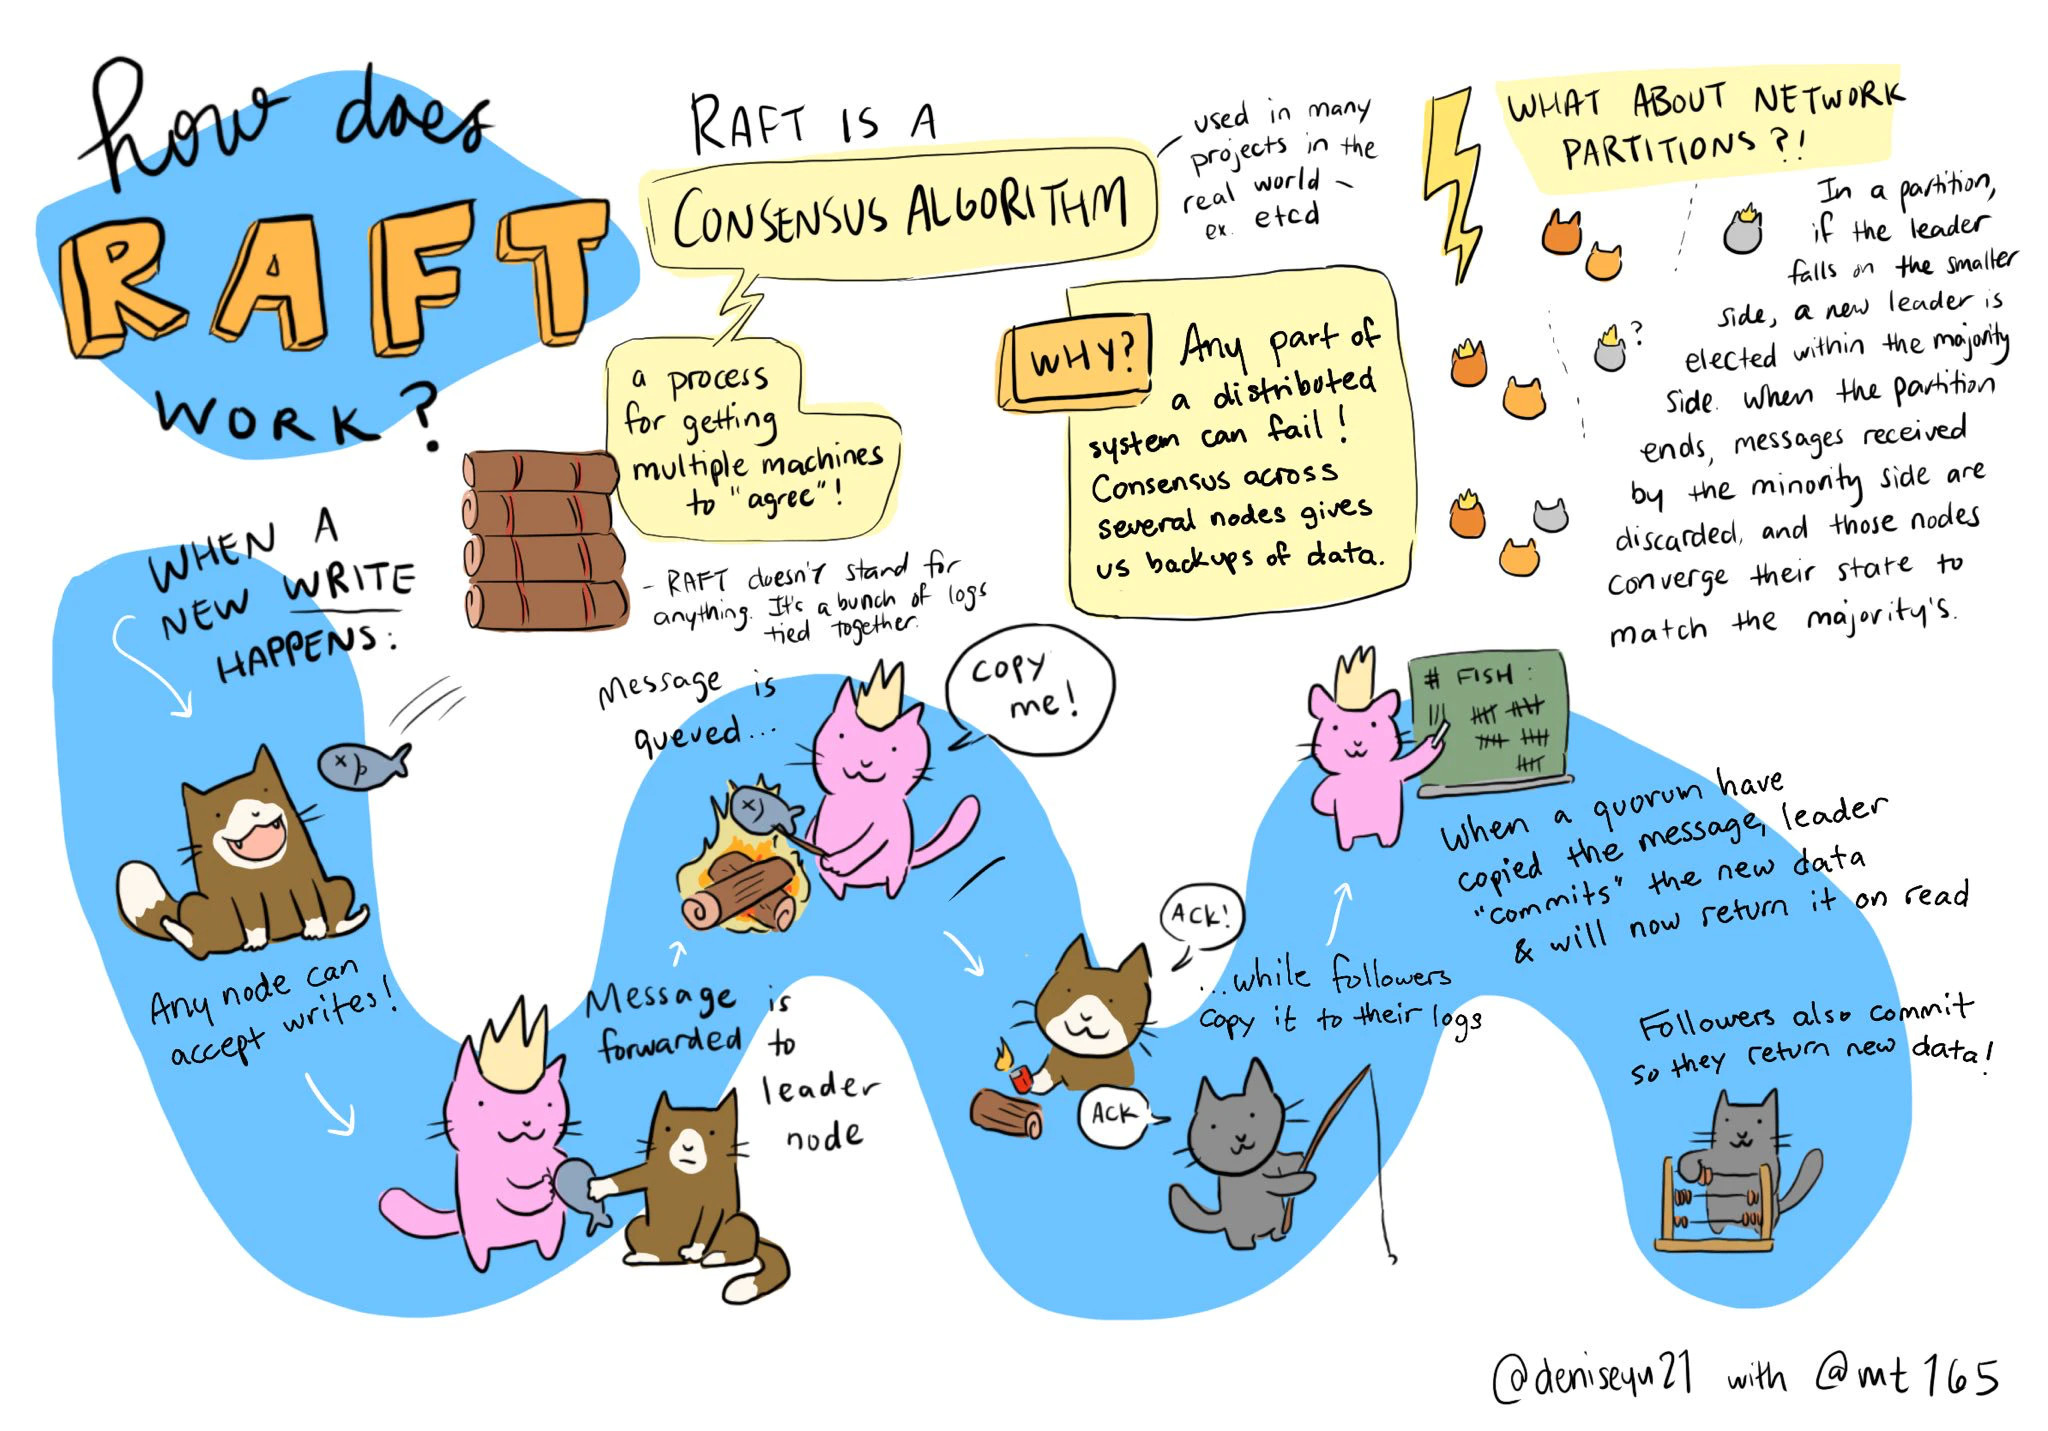 how does
RAFT
WORK?
RAFT IS A
CONSENSUS ALGORITHM
used in many
projects in the
real world -
ex. etcd
a process
for getting
multiple machines
to "agree"!
- RAFT doesn't stand for
anything. It's a bunch of logs
tied together.
WHY?
Any part of
a distributed
system can fail!
Consensus across
several nodes gives
us backups of data.
WHAT ABOUT NETWORK
PARTITIONS?!
In a partition,
if the leader
falls on the smaller
side, a new leader is
elected within the majority
side. When the partition
ends, messages received
by the minority side are
discarded, and those nodes
converge their state to
match the majority's.
?
WHEN A
NEW WRITE
HAPPENS:
Any node can
accept writes!
Message is
forwarded to
leader
node
Message is
queued...
Copy
me!
ACK!
ACK
...while followers
copy it to their logs
# FISH:
When a quorum have
copied the message, leader
"commits" the new data
& will now return it on read
Followers also commit
so they return new data!
@deniseyu21 with @mt165